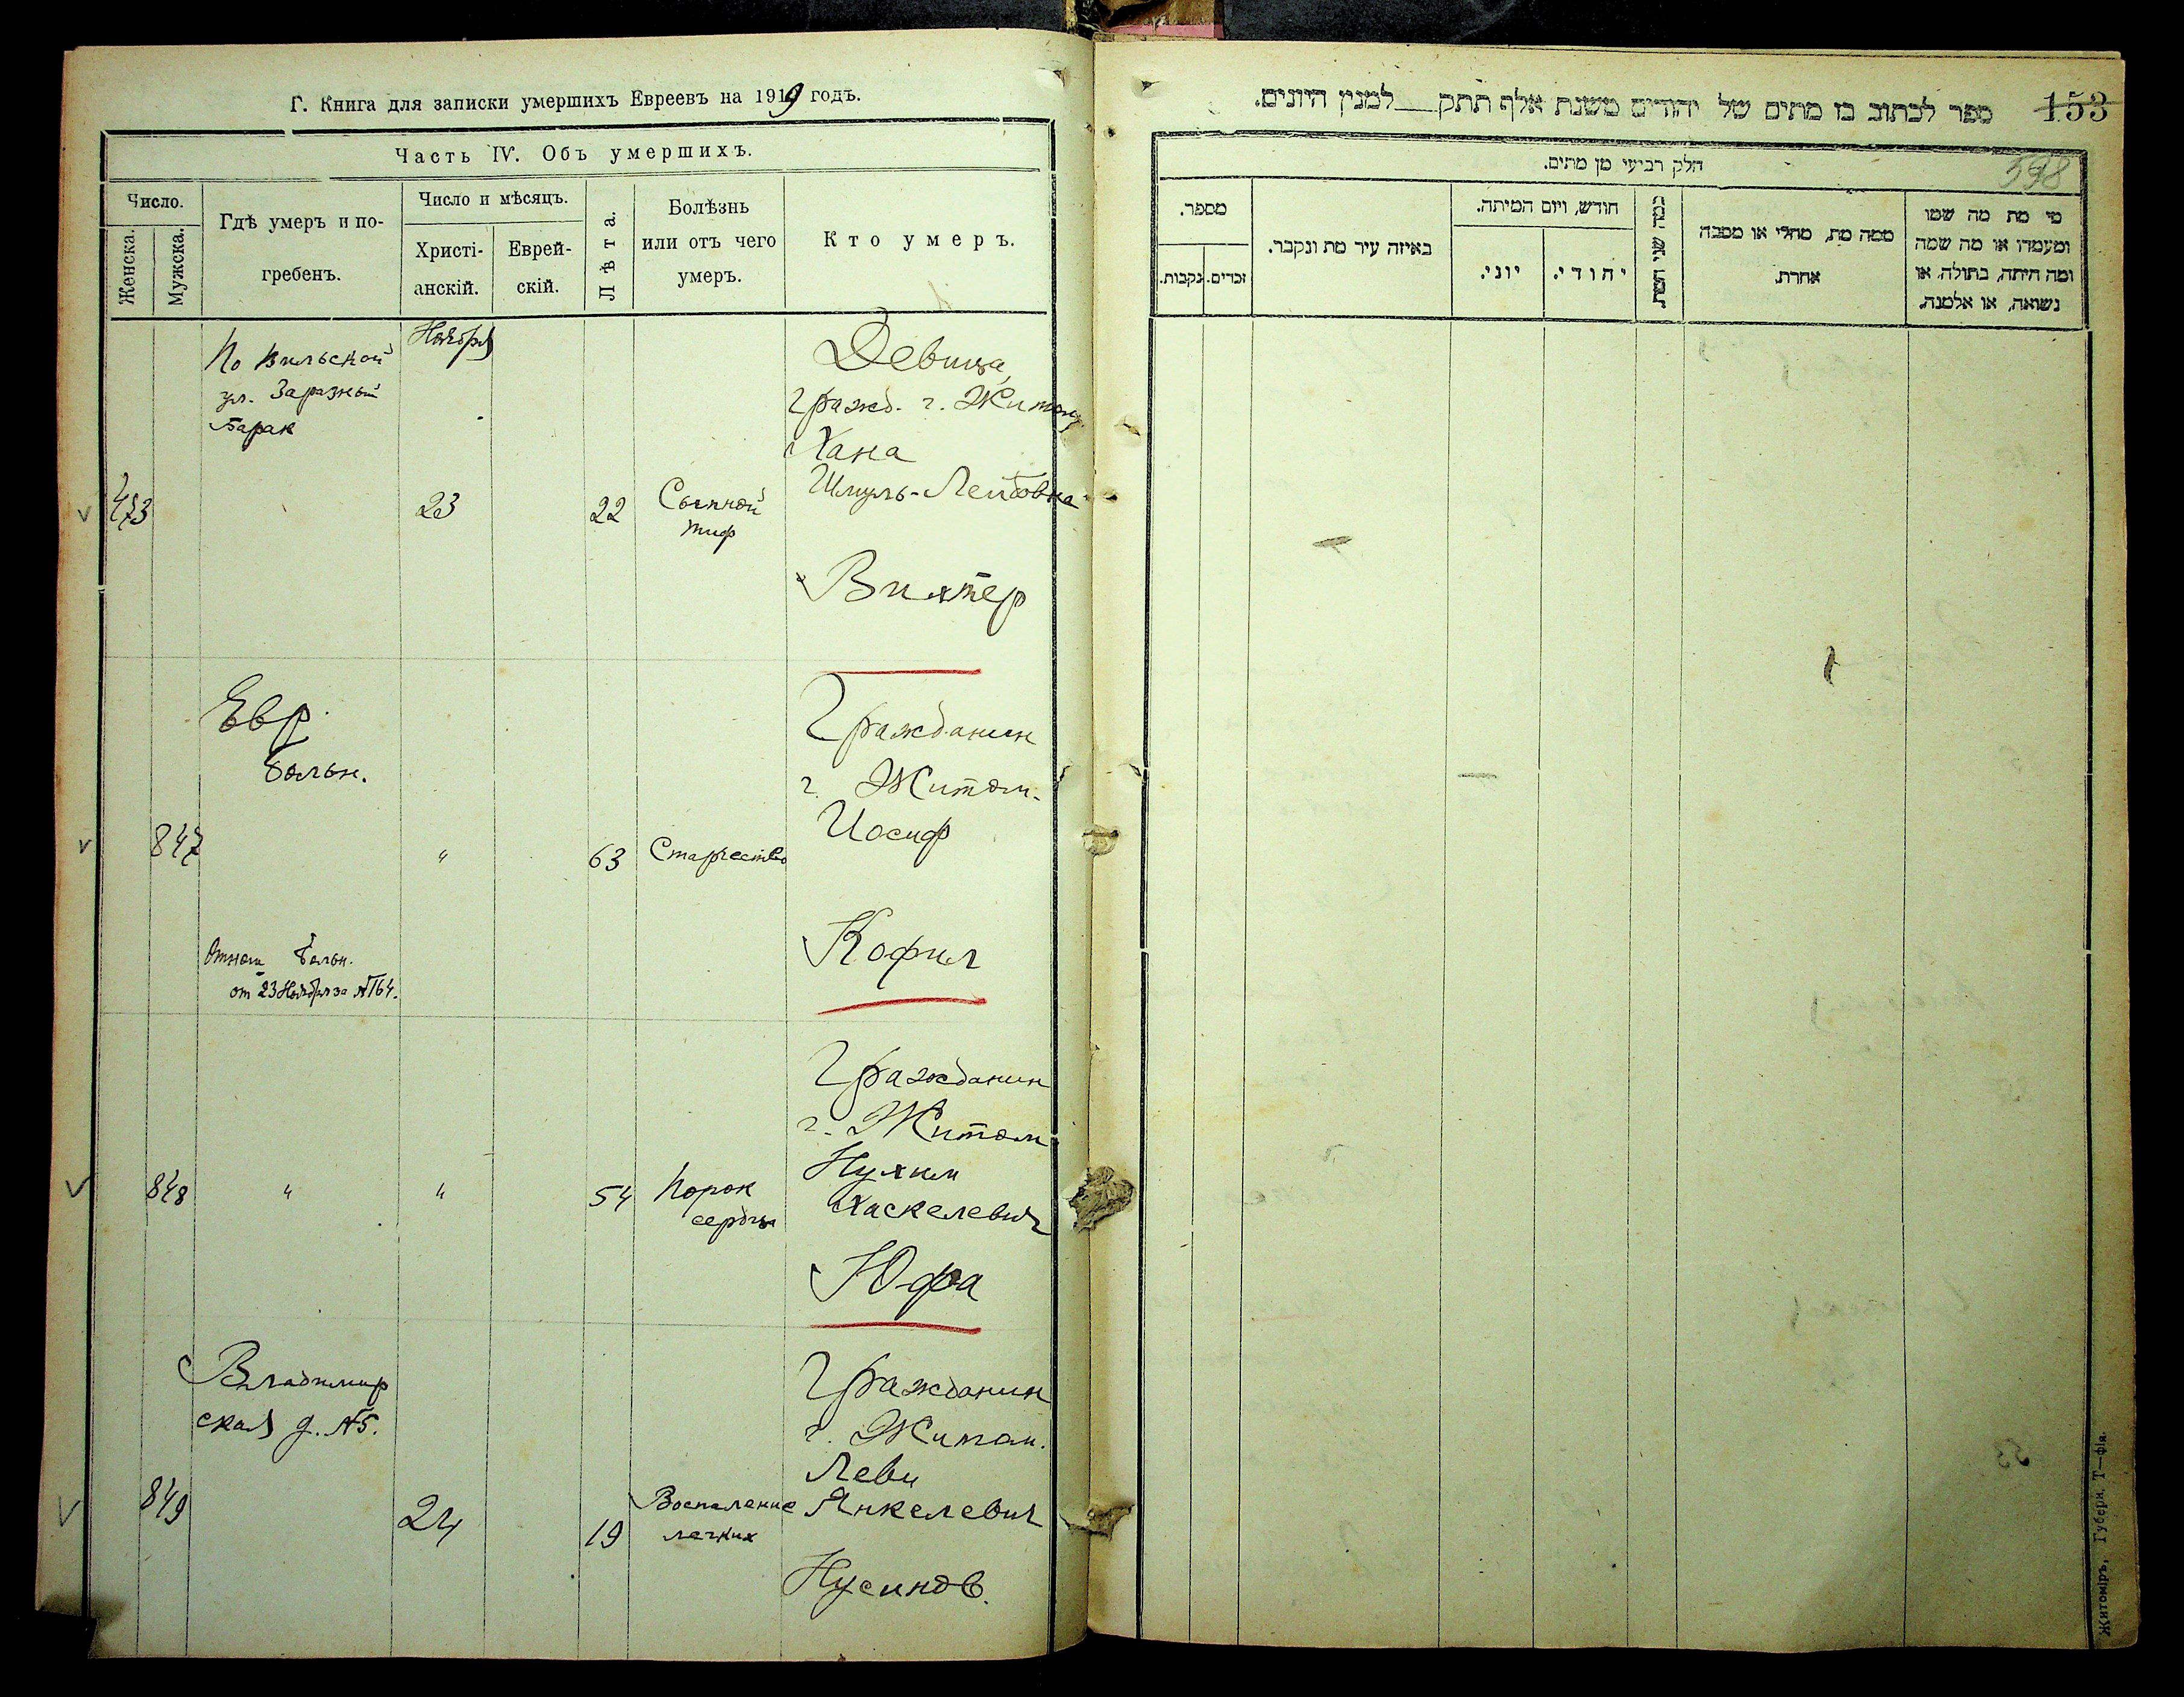 Г. Книга для записки умершихъ Евреевъ на 1919 годъ.
Часть IV. Объ умершихъ.
Число.
Женска.
Мужска.
Гдѣ умеръ и по-
гребенъ.
Число и мѣсяцъ.
Христі-
анскій.
Еврей-
скій.
Лѣта.
Болѣзнь
или отъ чего
умеръ.
Кто умеръ.
По Вильской
ул. Заразный
Барак
Ноября
Девица
гражд. г. Житом
Хана
Шмуль-Лейбовна
473
23
22
Сыпной
тиф
Вихтер
Евр.
больн.
Гражданин
г. Житом.
Иосиф
847
"
63
Старчество
Кофил
Отнош больн.
от 23 Ноября за №164.
Гражданин
г. Житом
Нухим
Хаскелевич
848
"
"
54
Порок
сердца
Юфа
Владимир
ская д. №5.
Гражданин
г. Житом.
Леви
Янкелевич
849
24
19
Воспаление
легких
Нусинов.
ספר לכתוב בו מתים של יהודים משנת אלף תתק למנין היונים.
153
598
חלק רביעי מן מתים.
מספר.
נקבות.
זכרים.
באיזה עיר מת ונקבר.
חודש, ויום המיתה.
יוני.
יהודי.
כמה שני המת.
ממה מת, מחלי או מסבה
אחרת.
מי מת מה שמו
ומעמדו או מה שמה
ומה היתה, בתולה, או
נשואה, או אלמנה.
Житоміръ, Губерн. Т—фія.